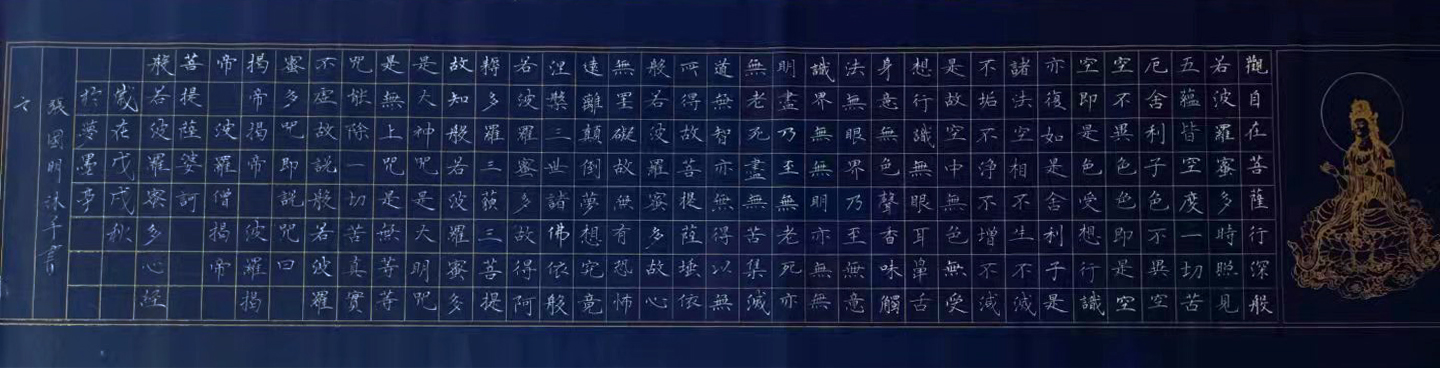 觀自在菩薩行深般
若波羅蜜多時照見
五蘊皆空度一切苦
厄舍利子色不異空
空不異色色即是空
空即是色受想行識
亦復如是舍利子是
諸法空相不生不滅
不垢不淨不增不減
是故空中無色無受
想行識無眼耳鼻舌
身意無色聲香味觸
法無眼界乃至無意
識界無無明亦無無
明盡乃至無老死亦
無老死盡無苦集滅
道無智亦無得以無
所得故菩提薩埵依
般若波羅蜜多故心
無罣礙故無有恐怖
遠離顛倒夢想究竟
涅槃三世諸佛依般
若波羅蜜多故得阿
耨多羅三藐三菩提
故知般若波羅蜜多
是大神咒是大明咒
是無上咒是無等等
咒能除一切苦真實
不虛故說般若波羅
蜜多咒即說咒曰
揭帝揭帝 波羅揭
帝 波羅僧揭帝
菩提薩婆訶
般若波羅蜜多心經
歲在戊戌秋
於夢墨亭
張國明沐手書